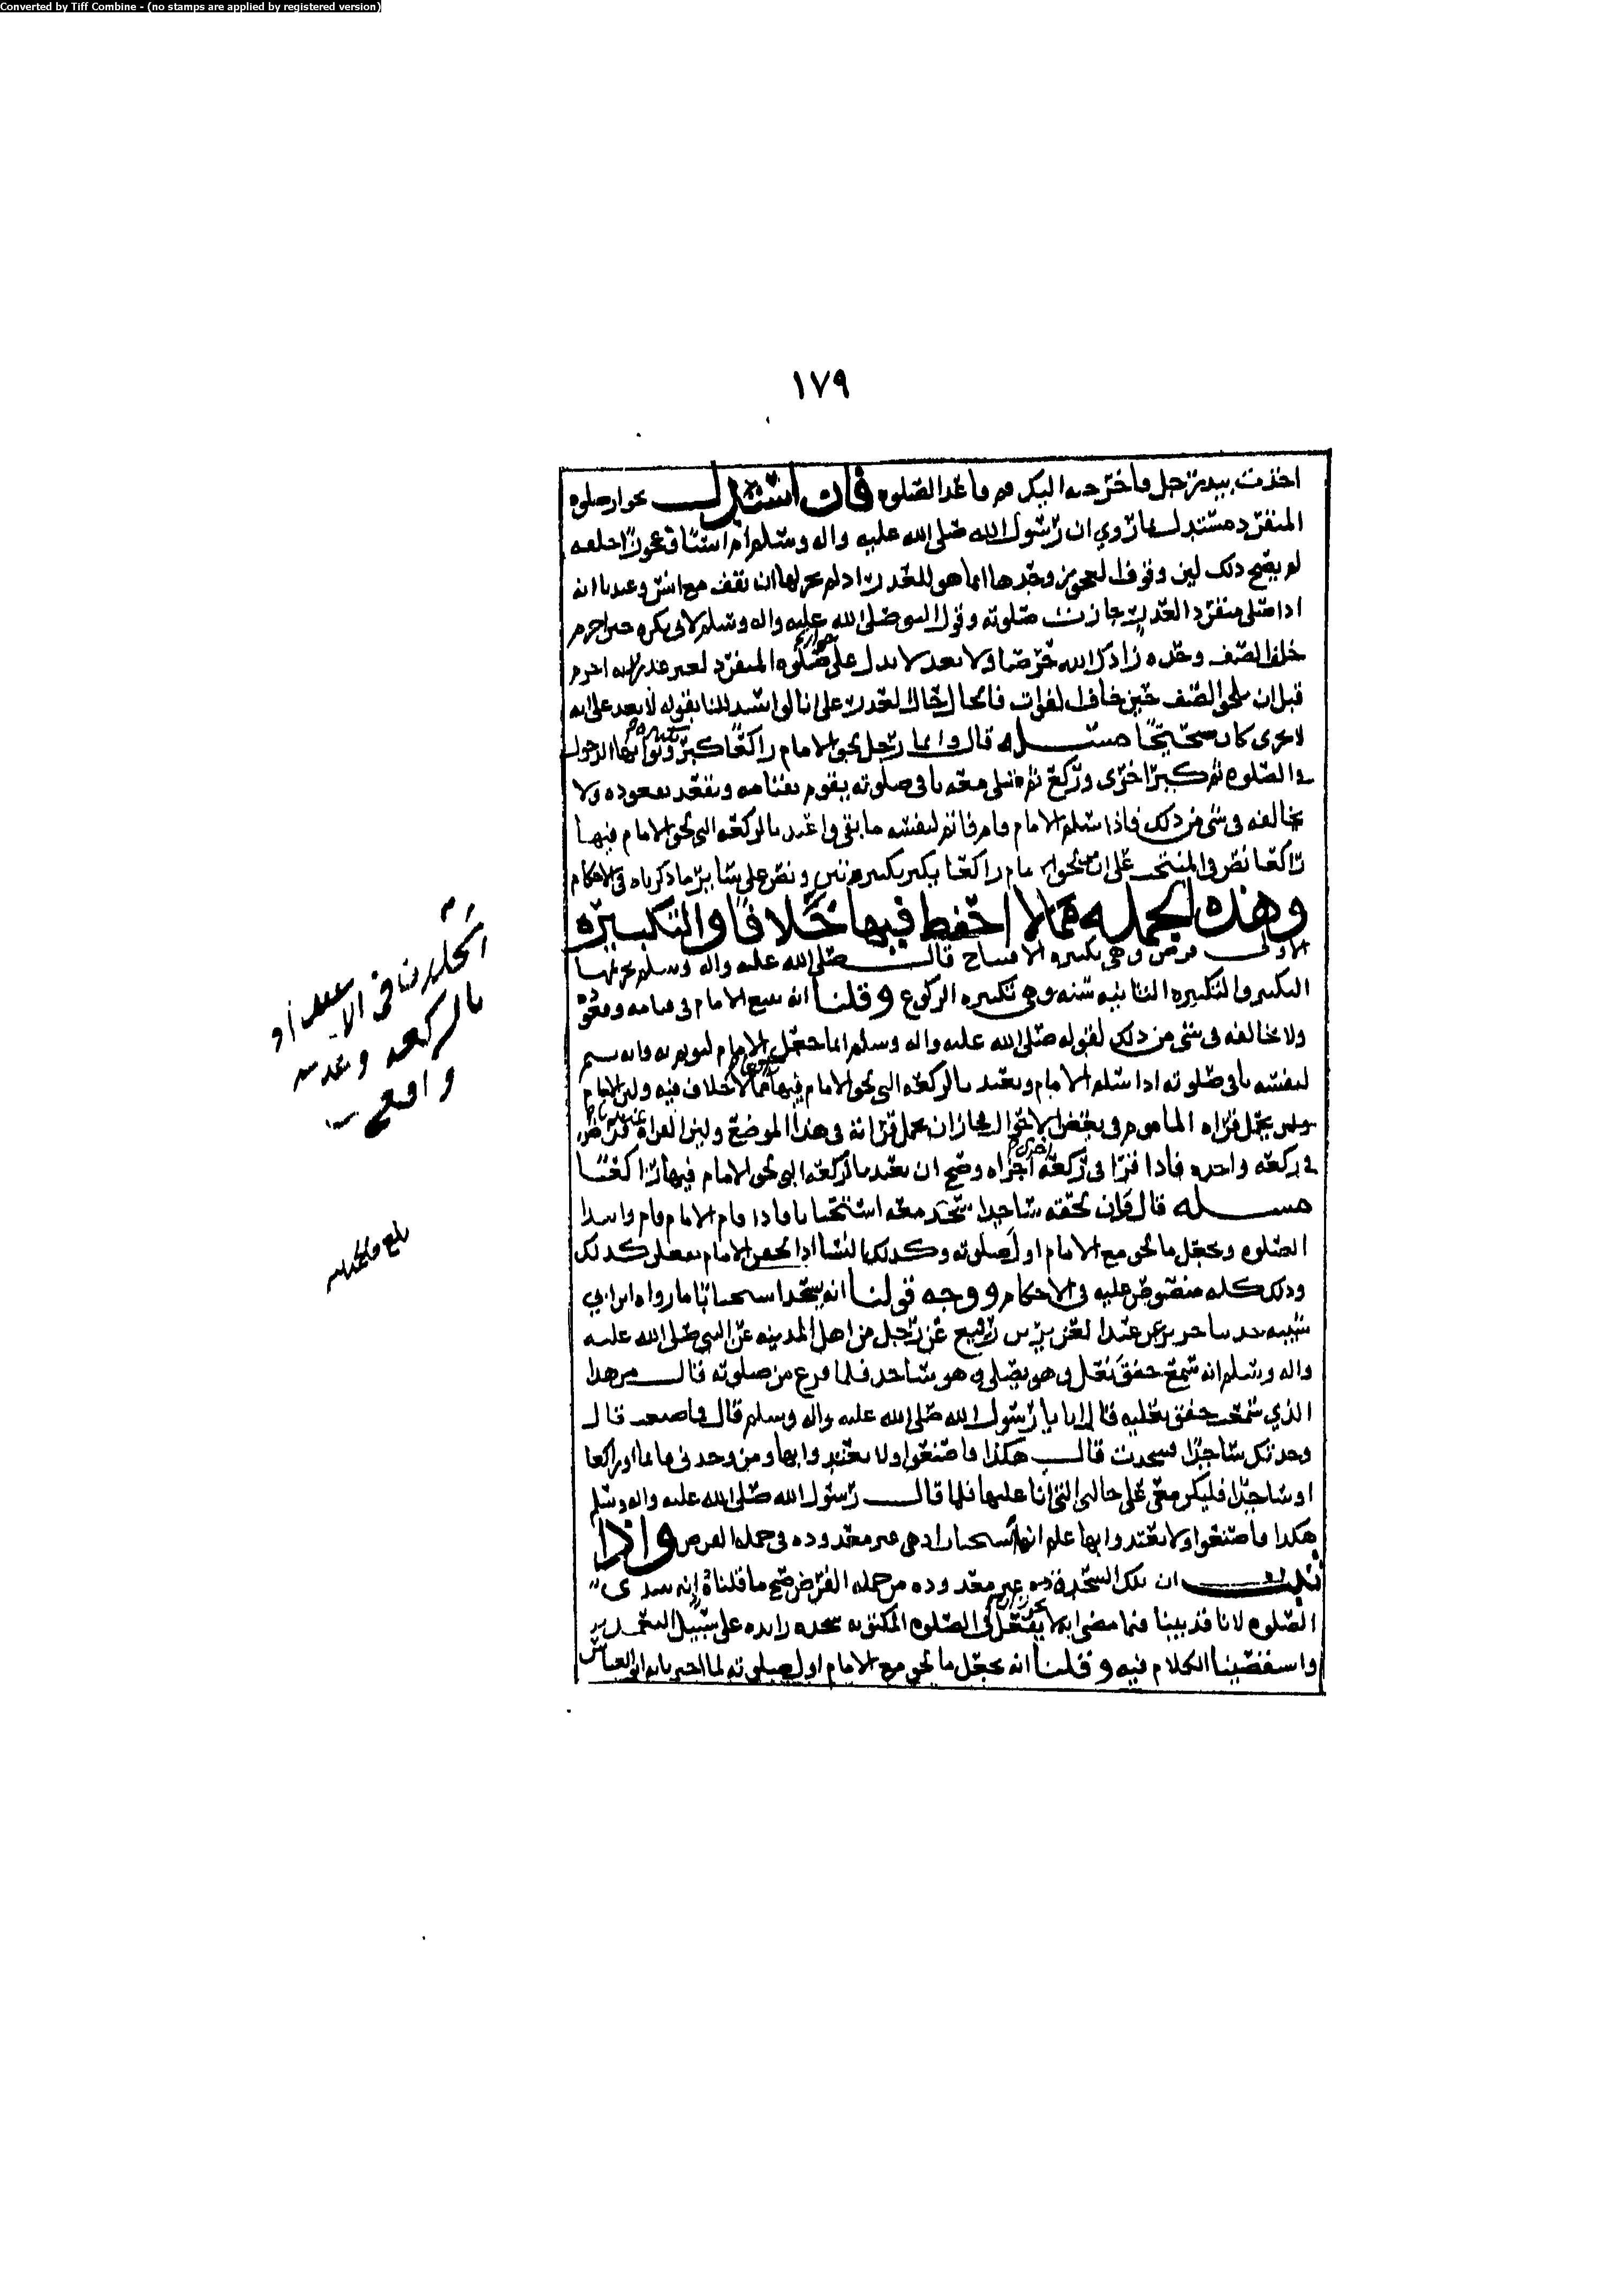 Converted by Tiff Combine - (no stamps are applied by registered version)
١٧٩
اخذت بيد رجل فاخرجته اليك قم فاعد الصلوه فان استدل بجواز صلوه
المنفرد مستدل بما روي ان رسول الله صلى الله عليه واله وسلم ام انسا وعجوزا خلفه
لم يصح ذلك لان وقوف العجوز وحدها انما هو للعذر اذ لم يجز لها ان تقف مع انس وعندنا انه
اذا صلى منفردا لعذر جازت صلوته وقول النبي صلى الله عليه واله وسلم لابي بكره حين احرم
خلف الصف وحده زادك الله حرصا ولا تعد لا يدل على جواز صلوه المنفرد لغير عذر لانه احرم
قبل ان يلحق الصف حين خاف الفوات فالحال حال العذر على انا لو استدللنا بقوله لا تعد على انه
لا يجزي كان صحيحا مسئله قال وايما رجل لحق الامام راكعا كبر تكبيره ونوى بها الدخول
في الصلوه ثم كبر اخرى وركع ثم صلى معه باقي صلوته يقوم بقيامه ويقعد بقعوده ولا
يخالفه في شي من ذلك فاذا سلم الامام قام فاتم لنفسه ما بقي واعتد بالركعه التي لحق الامام فيها
راكعا نص في المنتخب على ان من لحق الامام راكعا يكبر تكبيرتين ونص على سائر ما ذكرناه في الاحكام
وهذه الجمله مما لا احفظ فيها خلافا والتكبيره
الاولى فرض وهي تكبيره الافتتاح قال صلى الله عليه واله وسلم تحريمها
التكبير والتكبيره الثانيه سنه وهي تكبيره الركوع وقلنا انه يتبع الامام في قيامه وقعوده
ولا يخالفه في شي من ذلك لقوله صلى الله عليه واله وسلم انما جعل الامام ليوتم به وانه يتم
لنفسه باقي صلوته اذا سلم الامام ويعتد بالركعه التي لحق الامام فيها راكعا مما لا خلاف فيه ولان الامام
يحمل قراه الماموم في بعض الاحوال فجاز ان يحمل قراته في هذا الموضع ولان القراه عندنا فرض
في ركعه واحده فاذا قرا في ركعه اخرى اجزاه وصح ان يعتد بالركعه التي لحق الامام فيها راكعا
مسئله قال فان لحقه ساجدا سجد معه استحبابا فاذا قام الامام قام وابتدا
الصلوه وجعل ما لحق مع الامام اول صلوته وكذلك النسا اذا لحقن الامام يفعلن كذلك
وذلك كله منصوص عليه في الاحكام ووجه قولنا انه يسجد استحبابا ما رواه ابن ابي
شيبه حدثنا جرير عن عبد العزيز بن رفيع عن رجل من اهل المدينه عن النبي صلى الله عليه
واله وسلم انه سمع خفق نعلي وهو يصلي وهو ساجد فلما فرغ من صلوته قال من هذا
الذي سمعت خفق نعليه قال انا يا رسول الله صلى الله عليه واله وسلم قال فما صنعت قال
وجدتك ساجدا فسجدت قال هكذا فاصنعوا ولا تعتدوا بها ومن وجدني قائما او راكعا
او ساجدا فليكن معي على حالتي التي انا عليها فلما قال رسول الله صلى الله عليه واله وسلم
هكذا فاصنعوا ولا تعتدوا بها علم انها استحباب اذ هي غير معدوده في جمله الفرض واذا
ثبت ان تلك السجده غير معدوده من جمله الفرض صح ما قلناه انه يبتدي
الصلوه لانا قد بينا فيما مضى انه لا يجوز ان يفعل في الصلوه المكتوبه سجده زايده على سبيل التعمد
واستقصينا الكلام فيه وقلنا انه يجعل ما لحق مع الامام اول صلوته لما اخبرنا به ابو العباس
بالركعه